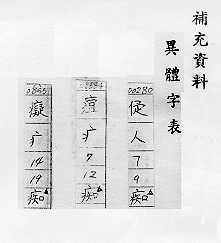 補充資料
異體字表
00280
人
7
9
痴
疒
7
12
痴
癡
疒
14
19
痴